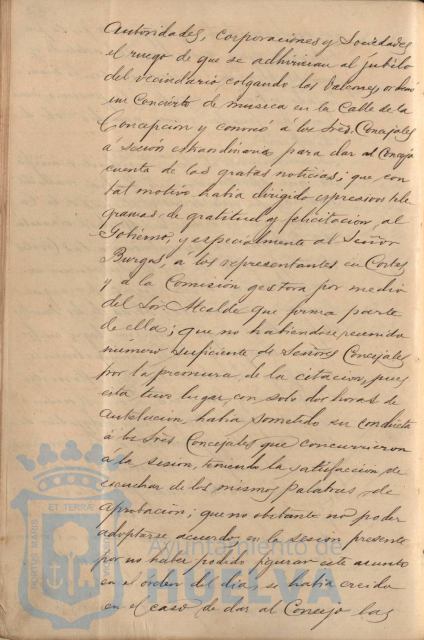 Autoridades, Corporaciones y Sociedades
el ruego de que se adhirieran al jubilo
del vecindario colgando los balcones, ordenó
un Concierto de música en la Calle de la
Concepcion y convocó á los Sres. Concejales
a sesion extraordinaria para dar al Concejo
cuenta de las gratas noticias; que con
tal motivo habia dirigido expresivos tele
gramas de gratitud y felicitacion al
Gobierno, y especialmente al Señor
Burgos, á los representantes en Cortes
y á la Comisión gestora por medio
del Sor. Alcalde que forma parte
de ella; que no habiendose reunido
número suficiente de Señores Concejales
por la premura de la citacion, pues
esta tuvo lugar con solo dos horas de
antelacion, habia sometido su conducta
á los Sres. Concejales que concurrieron
á la sesion, teniendo la satisfaccion de
escuchar de los mismos palabras de
aprobación; que no obstante no poder
adoptarse acuerdo en la sesion presente
por no haber podido figurar este asunto
en el orden del dia, se habia creido
en el caso de dar al Concejo las
PORTUS MARIS ET TERRAE
Ayuntamiento de
HUELVA